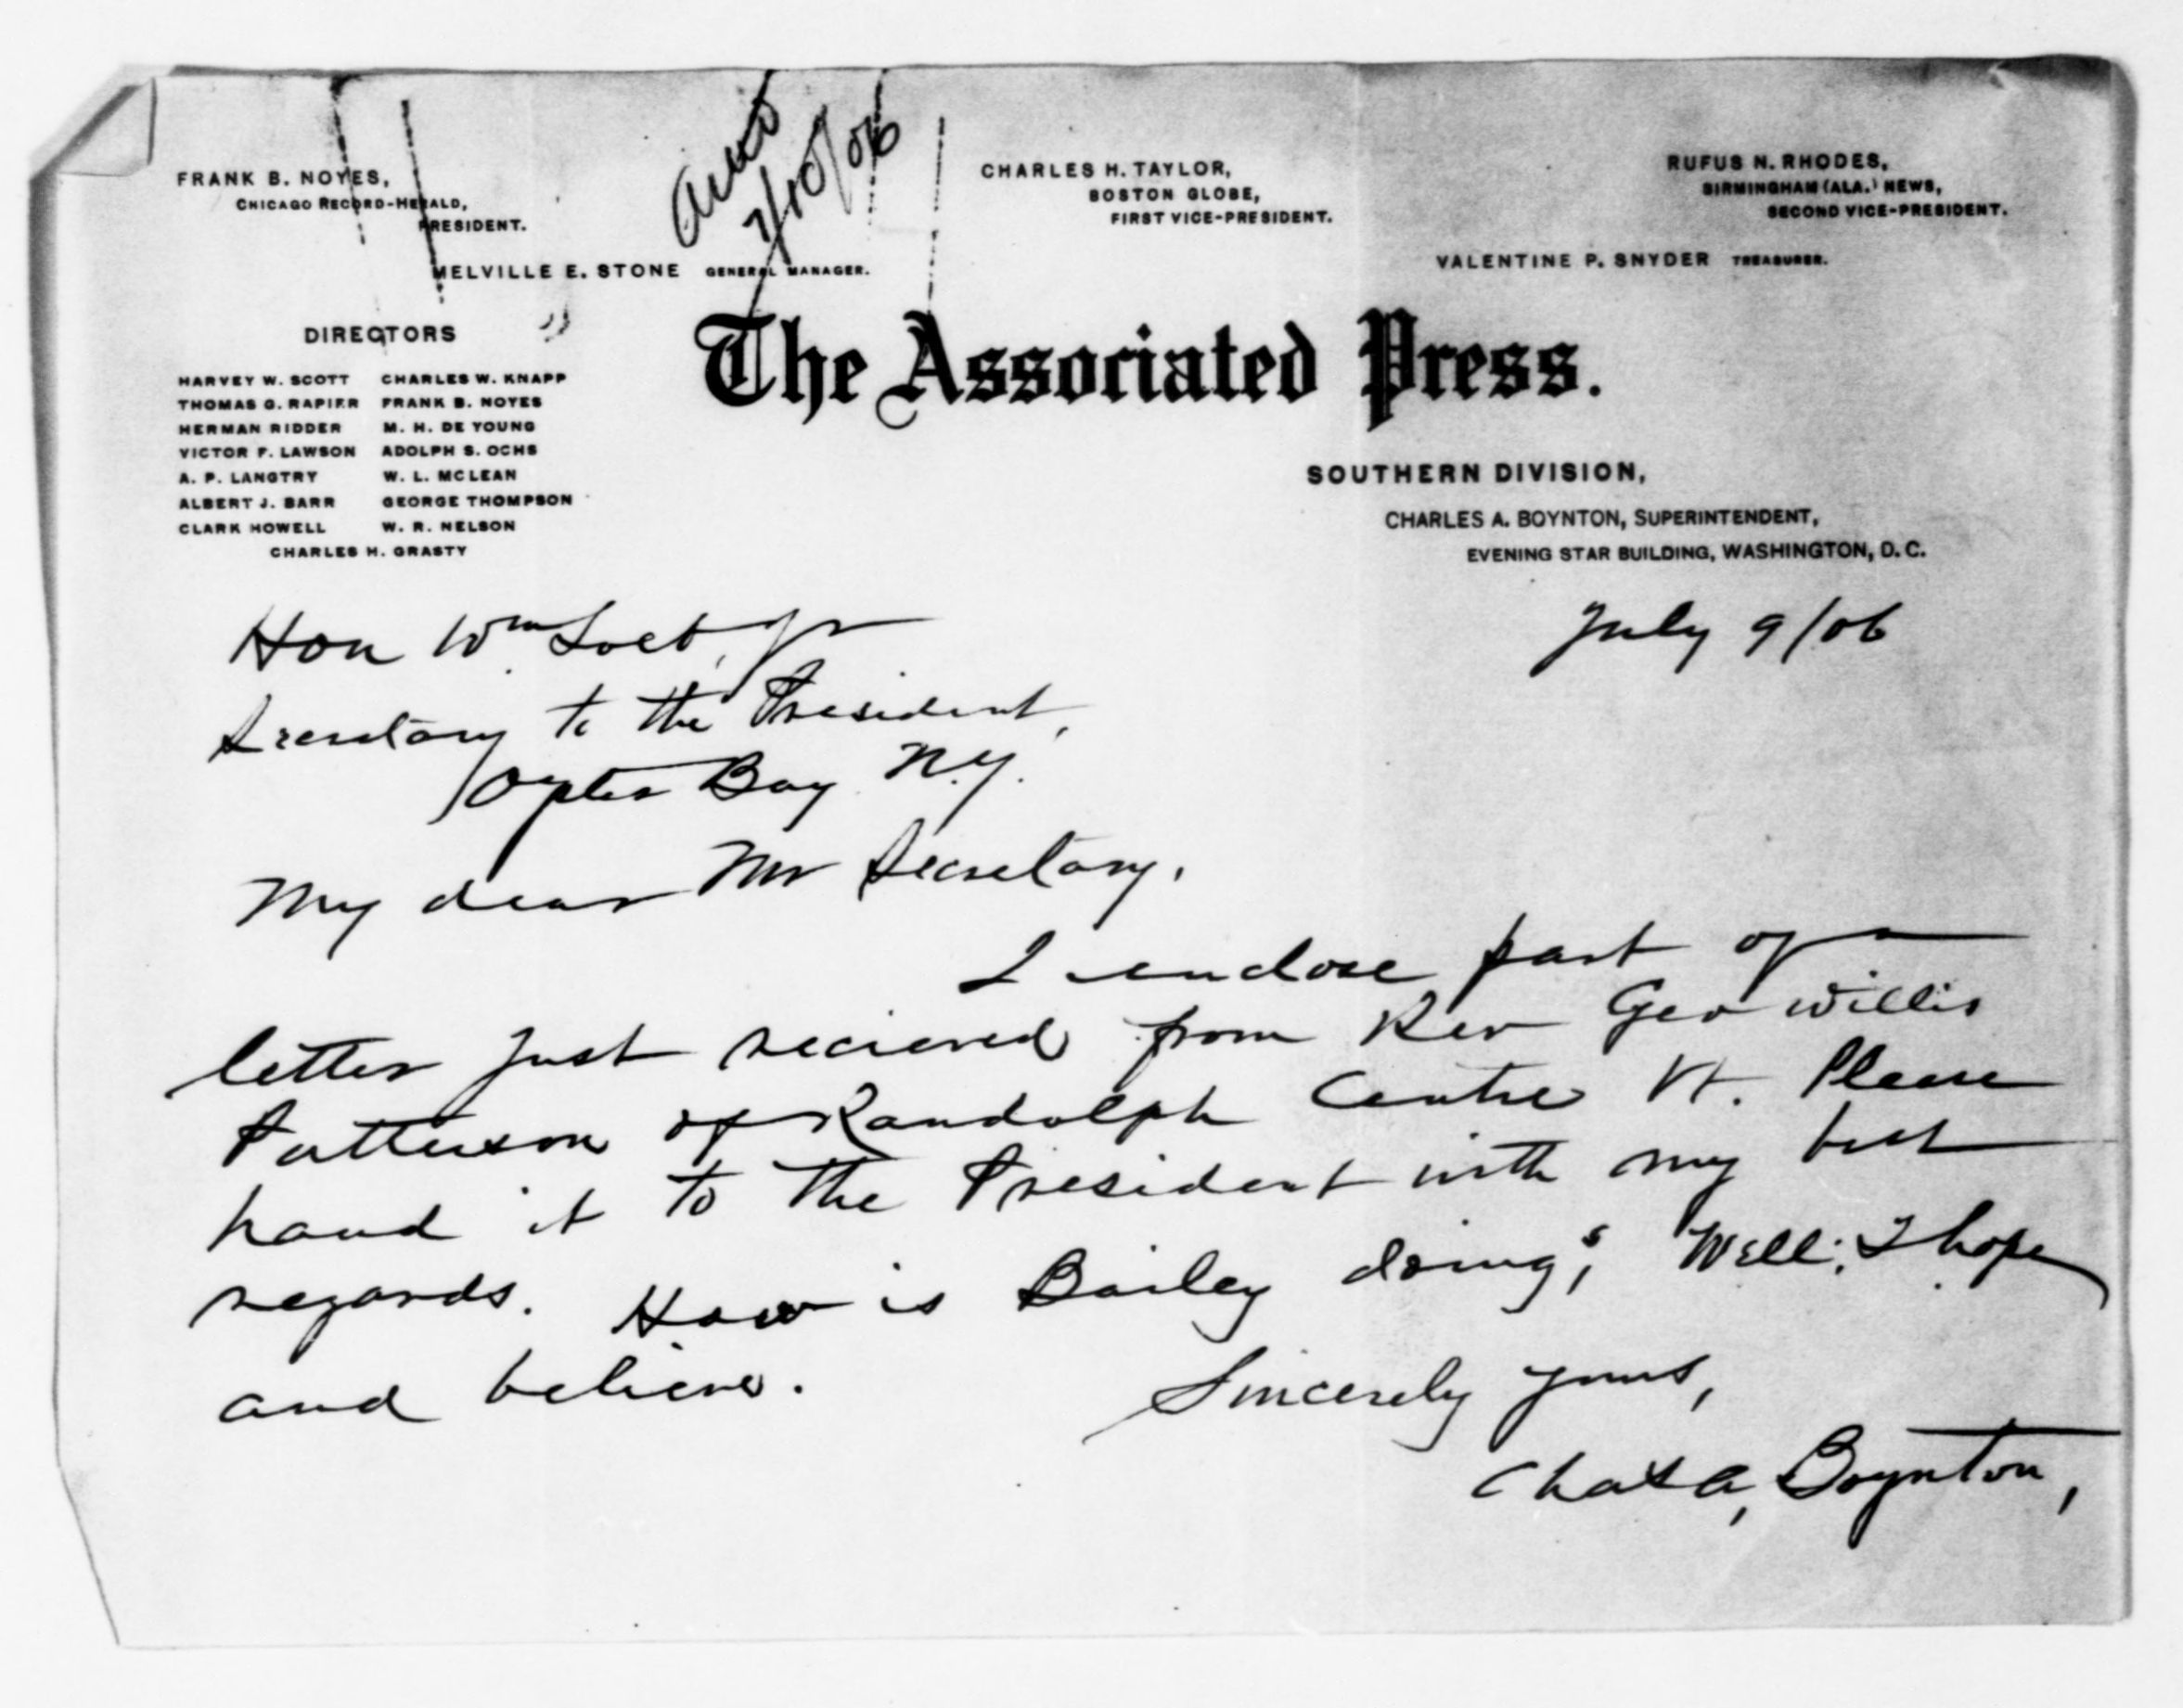 FRANK B. NOYES,
CHICAGO RECORD-HERALD,
PRESIDENT.
MELVILLE E. STONE GENERAL MANAGER.
7/10/06
CHARLES H. TAYLOR,
BOSTON GLOBE,
FIRST VICE-PRESIDENT.
RUFUS N. RHODES,
BIRMINGHAM (ALA.) NEWS,
SECOND VICE-PRESIDENT.
VALENTINE P. SNYDER TREASURER.
The Associated Press.
DIRECTORS
HARVEY W. SCOTT CHARLES W. KNAPP
THOMAS G. RAPIER FRANK B. NOYES
HERMAN RIDDER M. H. DE YOUNG
VICTOR F. LAWSON ADOLPH S. OCHS
A. P. LANGTRY W. L. MCLEAN
ALBERT J. BARR GEORGE THOMPSON
CLARK HOWELL W. R. NELSON
CHARLES H. GRASTY
SOUTHERN DIVISION,
CHARLES A. BOYNTON, SUPERINTENDENT,
EVENING STAR BUILDING, WASHINGTON, D. C.
July 9/06
Hon Wm Loeb, Jr
Secretary to the President,
Oyster Bay N.Y.
My dear Mr Secretary,
I enclose part of a
letter just recieved from Rev Geo Willis
Patterson of Randolph Centre Vt. Please
hand it to the President with my best
regards. How is Barley doing; Well; I hope
and believe.
Sincerely yours,
Chas A, Boynton,